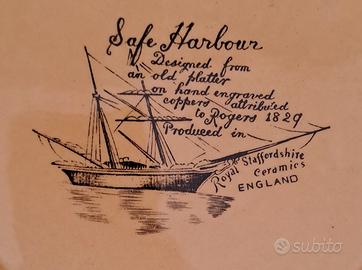 Safe Harbour
Designed from
an old platter
on hand engraved
coppers attributed
to Rogers 1829
Produced in
Royal Staffordshire
Ceramics
ENGLAND
subito